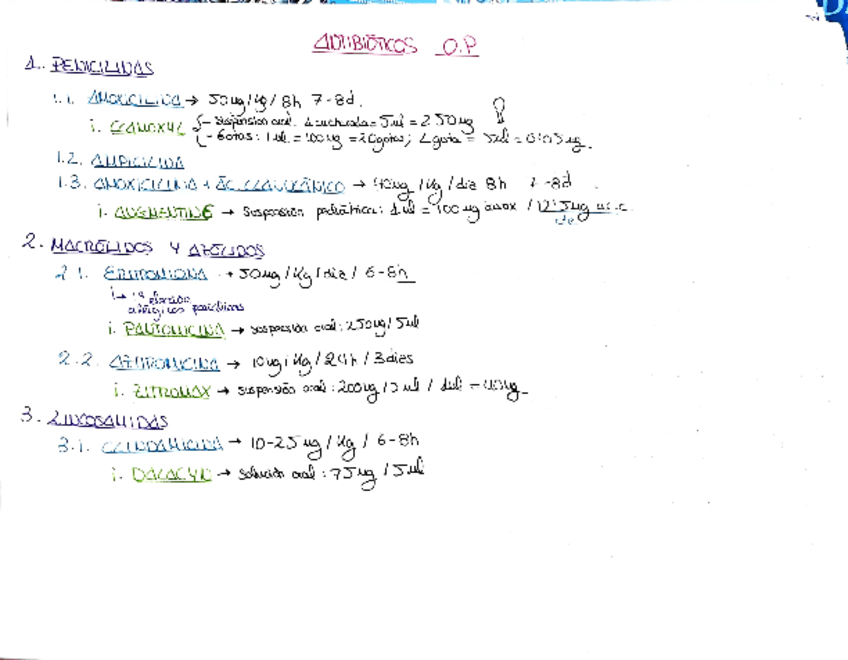 ANTIBIÓTICOS O.P
1. PENICILINAS
1.1. AMOXICILINA → 50mg/Kg/8h 7-8d.
i. CLAMOXYL - Suspensión oral. 1 cucharada = 5ml = 250mg
- Gotas: 1ml = 100mg = 20gotas; 1 gota =
1.2. AMPICILINA
1.3. AMOXICILINA + ÁC. CLAVULÁNICO → 40mg/Kg/dia 8h 7-8d
i. AUGMENTINE → Suspensión pediátrica: 1ml = 100mg amox / 12'5mg ac.c
2. MACRÓLIDOS Y AZÁLIDOS
2.1. ERITROMICINA → 50mg/Kg/dia/ 6-8h
→ 1ª elección
alérgicos penicilinas
i. PANTOMICINA → suspensión oral: 250mg/5ml
2.2. AZITROMICINA → 10mg/Kg/24h/3dias
i. ZITROMAX → suspensión oral: 200mg/5ml / 1ml = 40mg
3. LINCOSAMIDAS
3.1. CLINDAMICINA → 10-25mg/Kg/6-8h
i. DALACYN → solución oral: 75mg/5ml